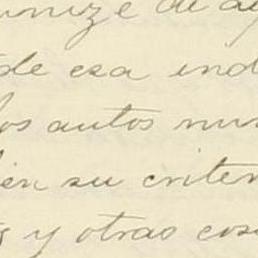 unize de a
de esa ind
los autos nu
ien su criter
s y otras cos